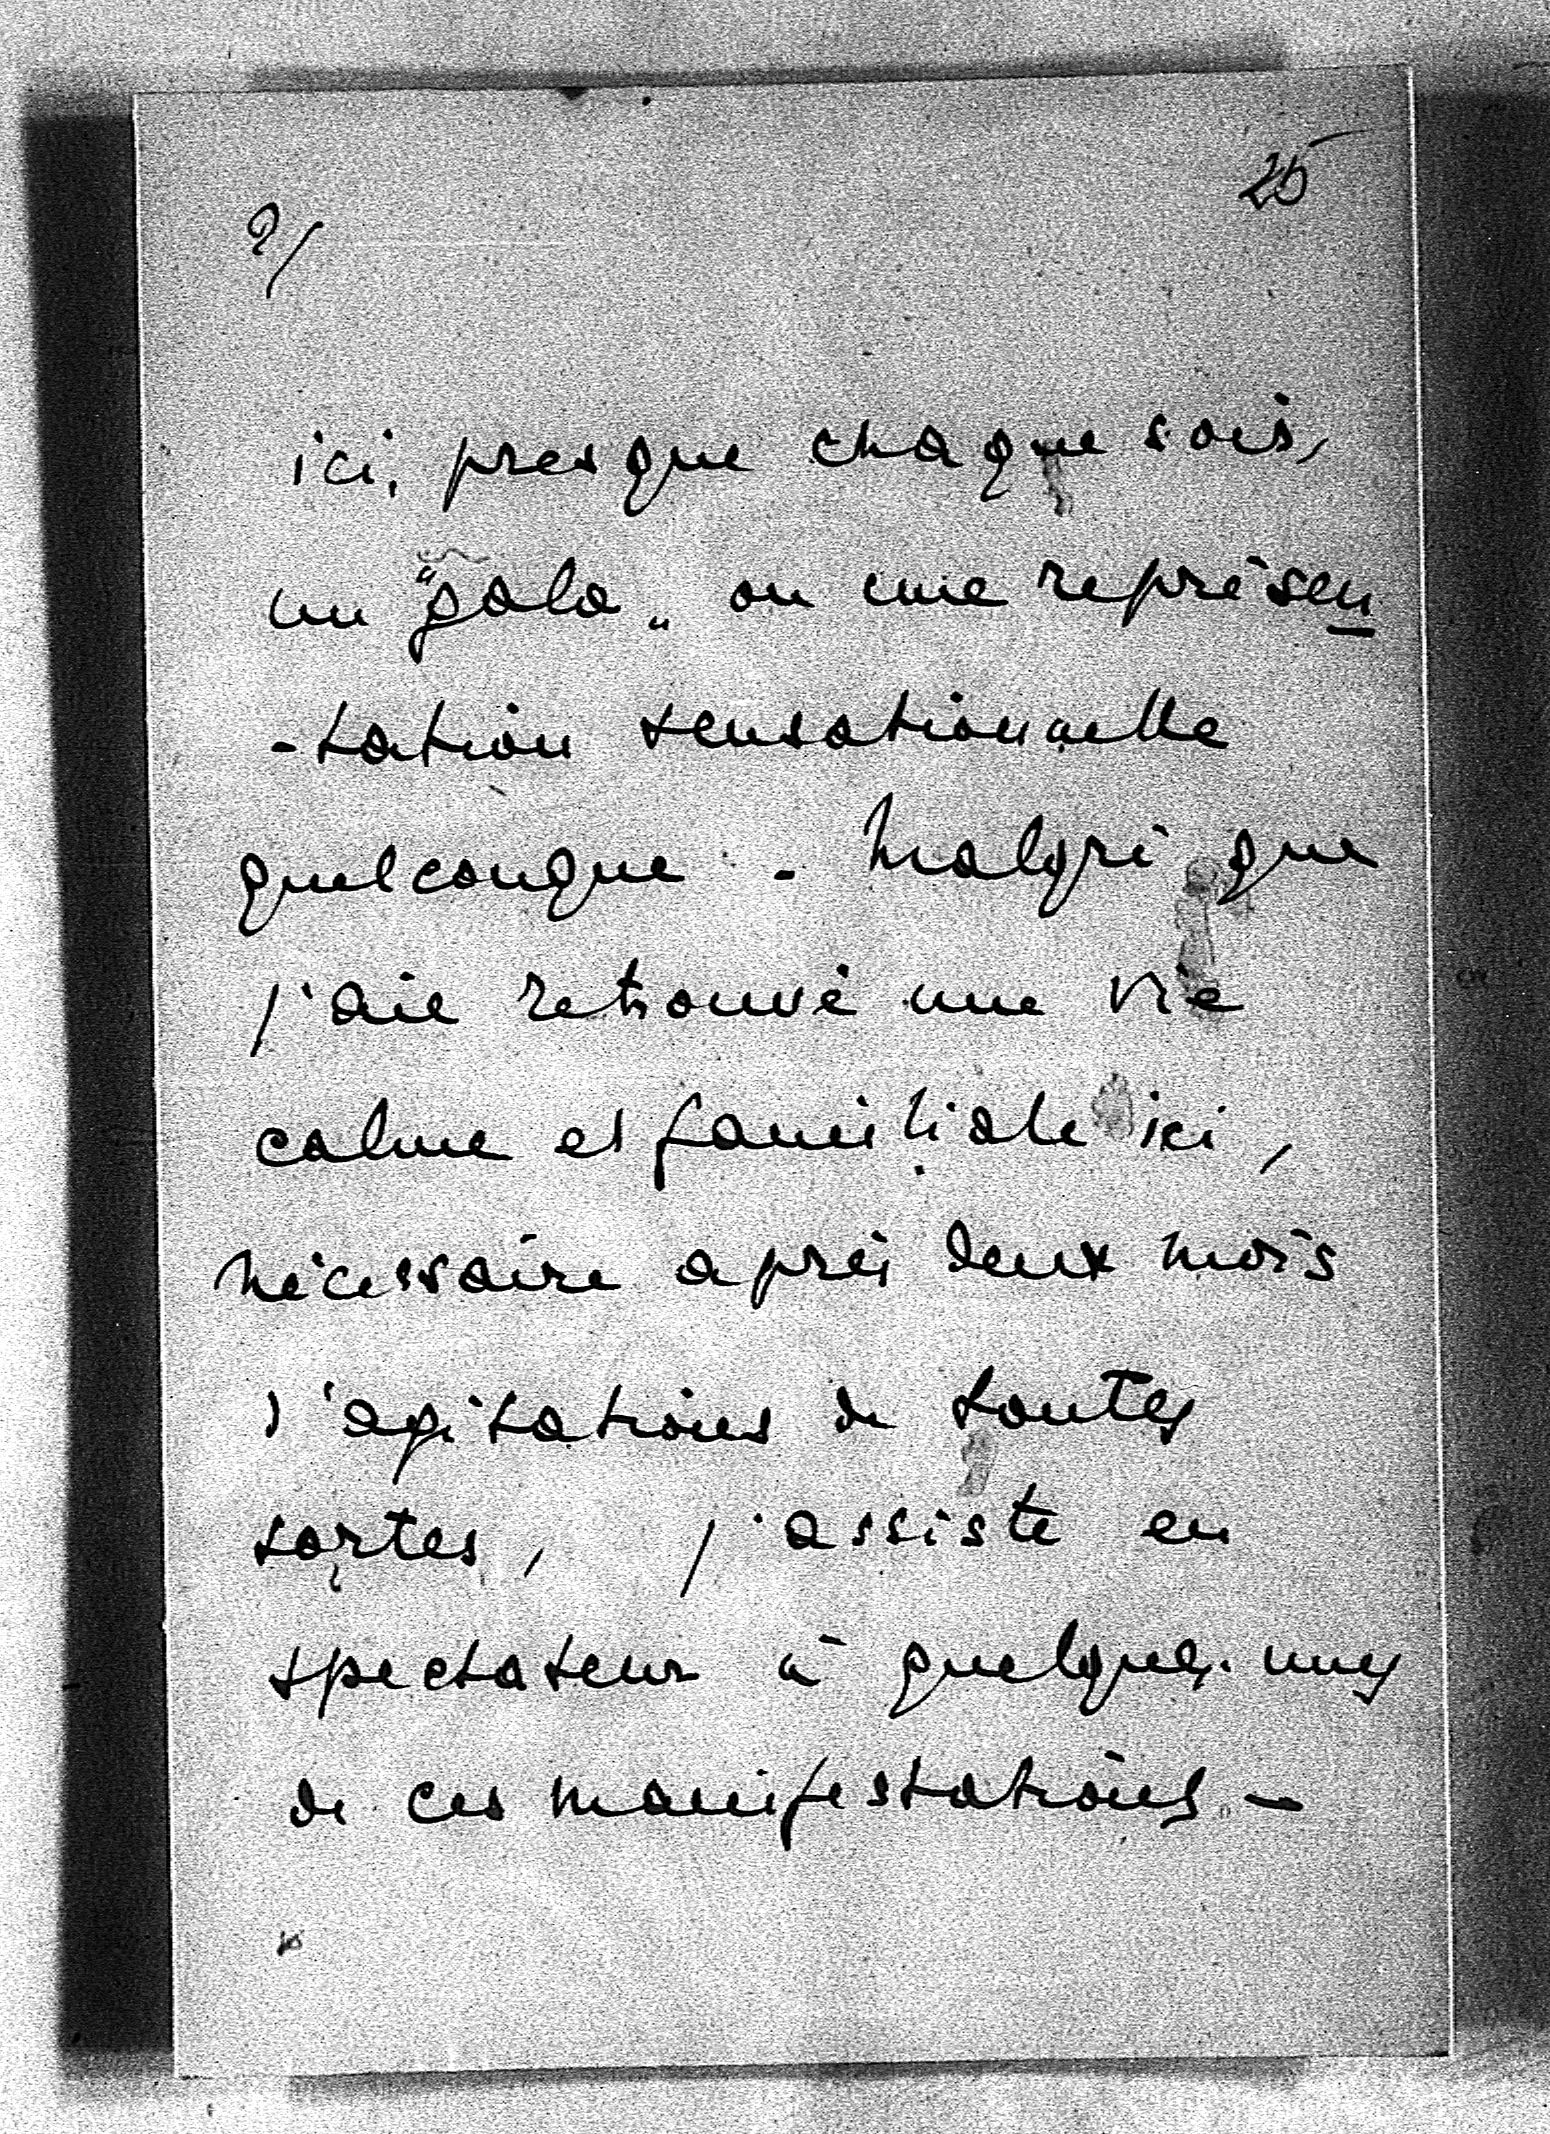 25
2/
ici, presque chaque soir,
un "gala" ou une représen
-tation sensationnelle
quelconque - Malgré que
j'aie retrouvé une vie
calme et familiale ici,
nécessaire après deux mois
d'agitations de toutes
sortes, j'assiste en
spectateur à quelques-unes
de ces manifestations -